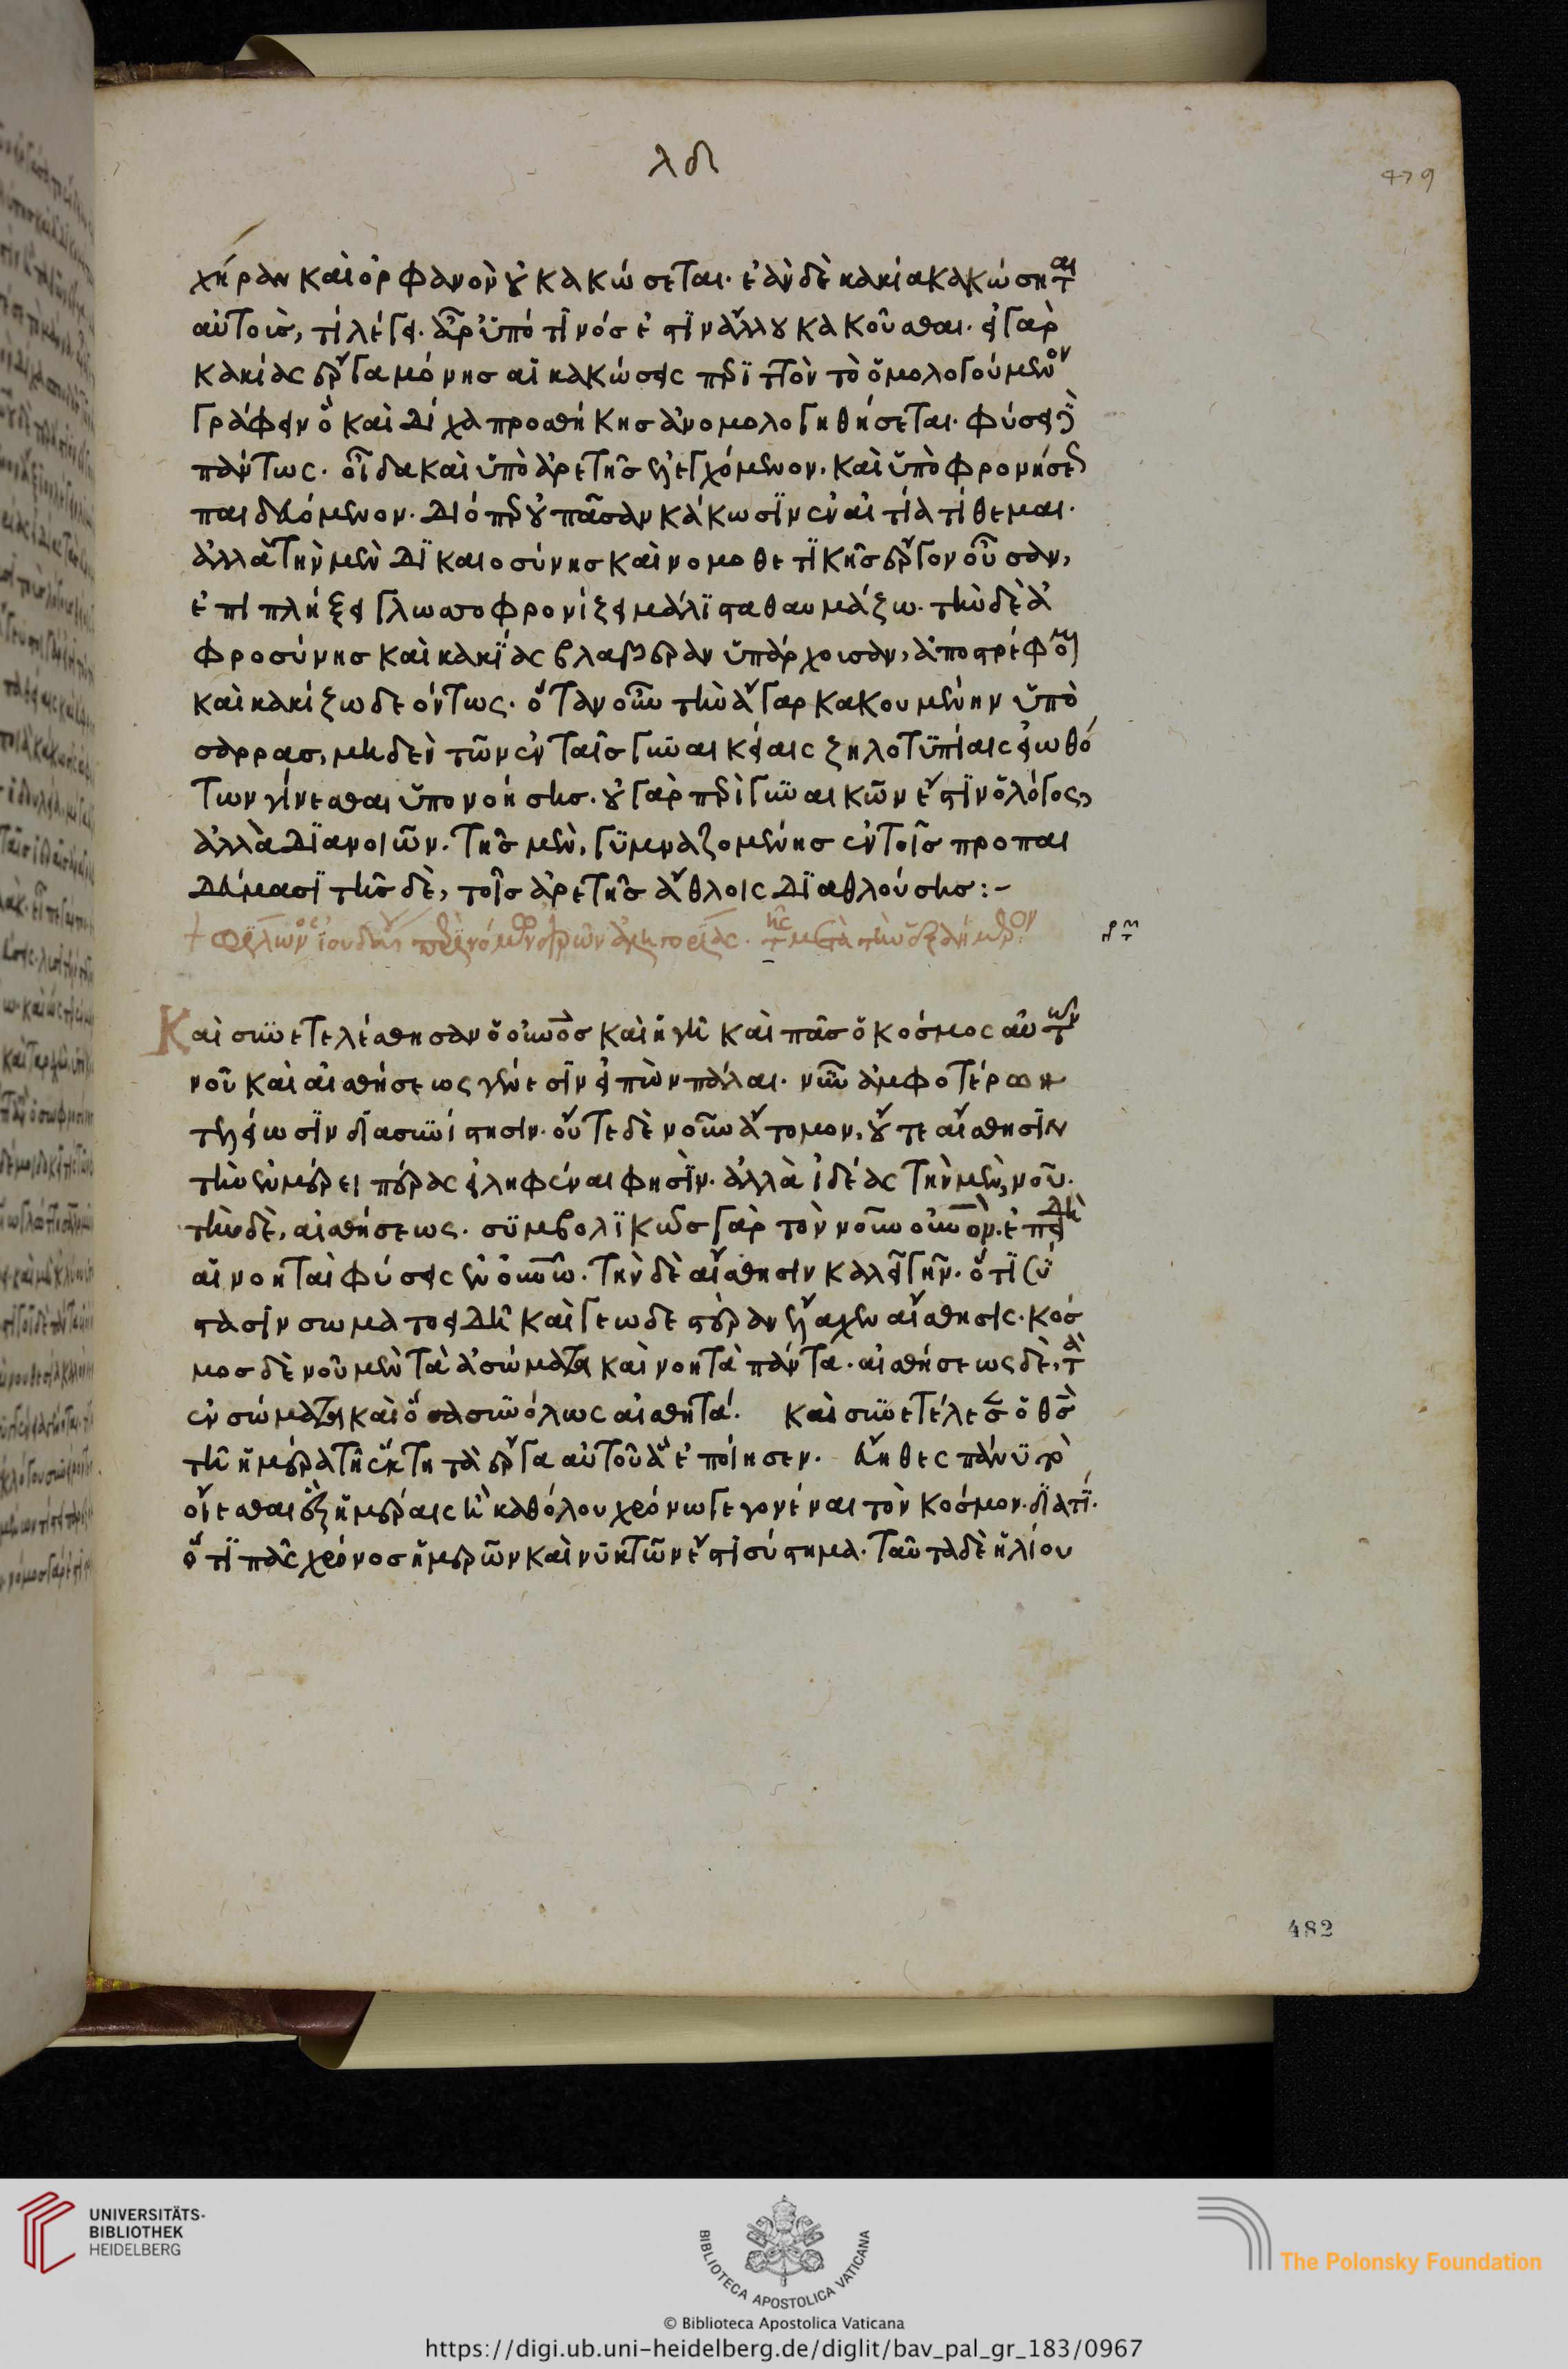 λδ
479
χήραν καὶ ὀρφανὸν οὐ κακώσεται· ἐὰν δὲ κακία κακώσητ(αι)
αὐτοὺς, τί λέγει. ἆρ ὑπό τινός ἐστιν ἄλλου κακοῦσθαι. εἰ γὰρ
κακίας ἔργα μόνης αἱ κακώσεις περιττὸν τὸ ὁμολογούμενον
γράφειν ὃ καὶ δίχα προσθήκης ἀνομολογηθήσεται. φύσει
πάντως. οἶδα καὶ ὑπὸ ἀρετῆς ἐλεγχόμενον, καὶ ὑπὸ φρονήσεως
παιδευόμενον. διόπερ οὐ πᾶσαν κάκωσιν ἐν αἰτίᾳ τίθεμαι.
ἀλλὰ τὴν μὲν δικαιοσύνης καὶ νομοθετικῆς ἔργον οὖσαν,
ἐπιπλήξει γὰρ σωφρονίζει μάλιστα θαυμάζω. τὴν δὲ ἀ
φροσύνης καὶ κακίας βλαβερὰν ὑπάρχουσαν, ἀποστρέφομαι
καὶ κακίζω δεόντως. ὅταν οὖν τὴν ἄγαρ κακουμένην ὑπὸ
σάρρας, μηδὲν τῶν ἐν ταῖς γυναικείαις ζηλοτυπίαις εἰωθό
των γίνεσθαι ὑπονοήσῃς. οὐ γὰρ περὶ γυναικῶν ἐστιν ὁ λόγος,
ἀλλὰ διανοιῶν. τῆς μὲν, γυμναζομένης ἐν τοῖς προπαι
δεύμασι τῆς δὲ, τοῖς ἀρετῆς ἄθλοις διαθλούσης :-
Καὶ συνετελέσθησαν ὁ οὐνος καὶ ἡ γῆ καὶ πᾶς ὁ κόσμος αὐτων
νοῦ καὶ αἰσθήσεως γένεσιν εἰπὼν πάλαι. νῦν ἀμφοτέρων
τελείωσιν διασυνίστησιν. οὔτε δὲ νοῦν ἄτομον, οὔτε αἴσθησιν
τὴν ἐν μέρει πέρας εἰληφέναι φησὶν. ἀλλὰ ἰδέας τὴν μὲν, νοῦ.
τὴν δὲ, αἰσθήσεως. συμβολικῶς γὰρ τὸν νοῦν οὐνον. ἐπειδὴ
αἱ νοηταὶ φύσεις ἐν οὐνω. τὴν δὲ αἴσθησιν καλεῖ γῆν. ὅτι σύ
στασιν σωματοειδῆ καὶ γεωδεστέραν ἔλαχεν αἴσθησις. κόσ
μος δὲ νοῦ μὲν τὰ ἀσώματα καὶ νοητὰ πάντα. αἰσθήσεως δὲ, τὰ
ἐν σώματα καὶ ὅσα συνόλως αἰσθητά. καὶ συνετέλεσ ὁ θς
τῇ ἡμέρᾳ τῇ ἕκτῃ τὰ ἔργα αὐτοῦ ἃ ἐποίησεν. εὔηθες πάνυ τὸ
οἴεσθαι ἓξ ἡμέραις ἢ καθόλου χρόνω γεγονέναι τὸν κόσμον. διατί.
ὅτι πᾶς χρόνος ἡμερῶν καὶ νυκτῶν ἐστι σύστημα. ταῦτα δὲ ἡλίου
482
UNIVERSITÄTS-
BIBLIOTHEK
HEIDELBERG
BIBLIOTECA APOSTOLICA VATICANA
The Polonsky Foundation
© Biblioteca Apostolica Vaticana
https://digi.ub.uni-heidelberg.de/diglit/bav_pal_gr_183/0967